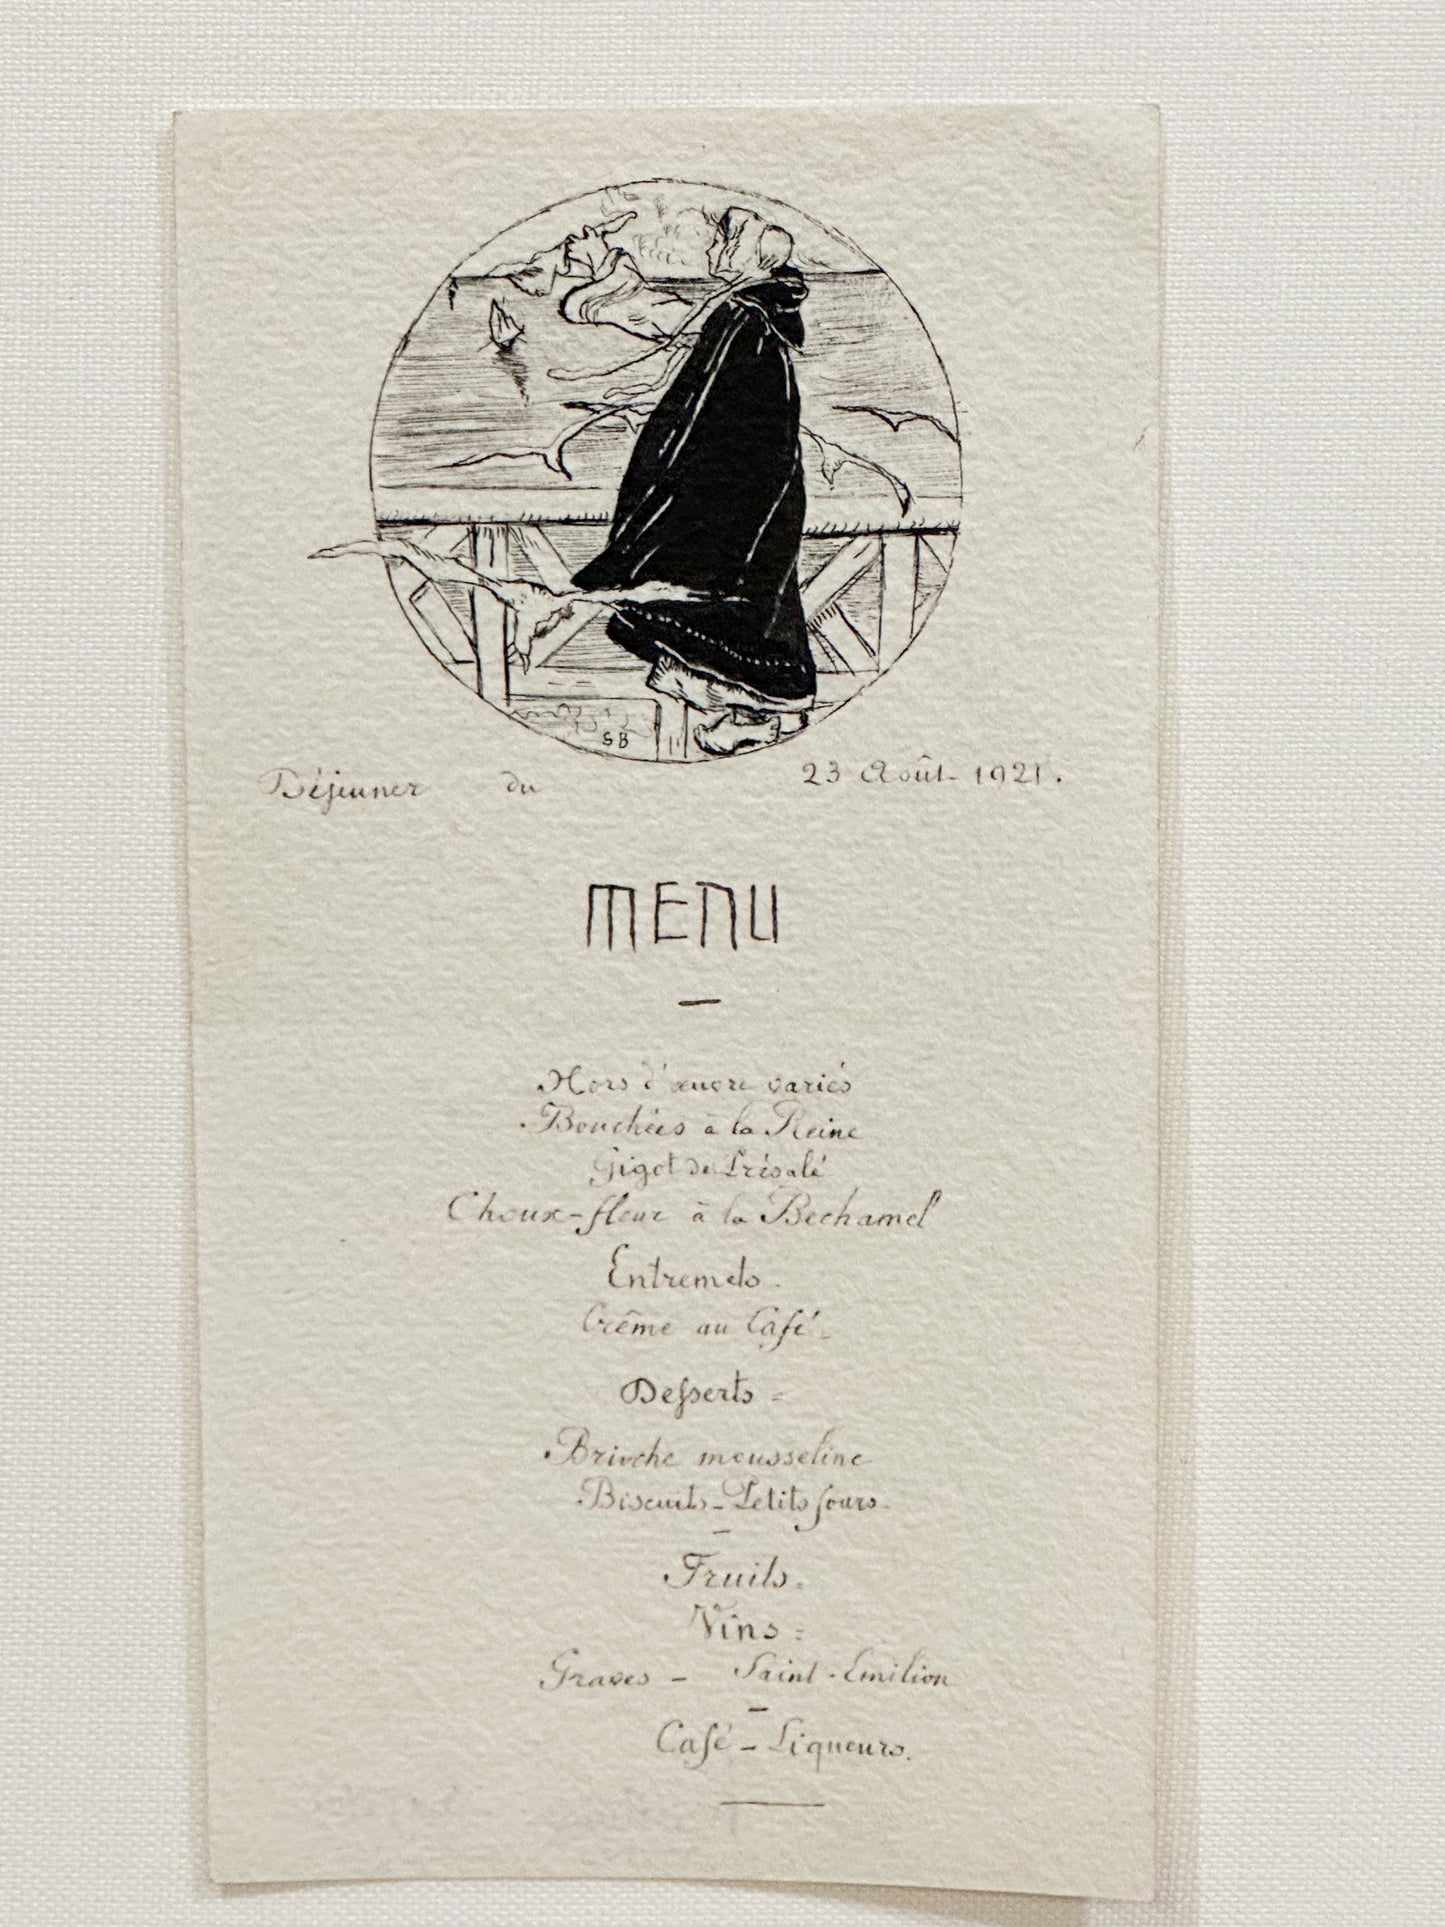 SB
Déjeuner du 23 Août 1921.
MENU
Hors d'œuvre variés
Bouchées à la Reine
Gigot de Présalé
Choux-fleur à la Bechamel
Entremets.
Crême au Café
Desserts
Brioche mousseline
Biscuits - Petits fours
Fruits
Vins
Graves - Saint-Emilion
Café - Liqueurs.